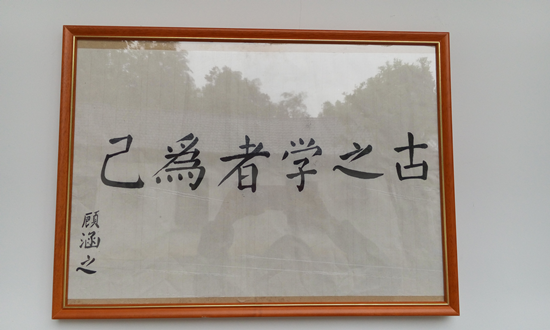 古之学者為己
顾涵之